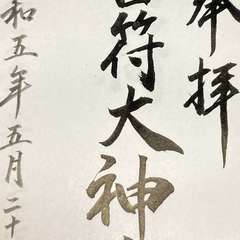 奉拝
符大神
和五年五月二十